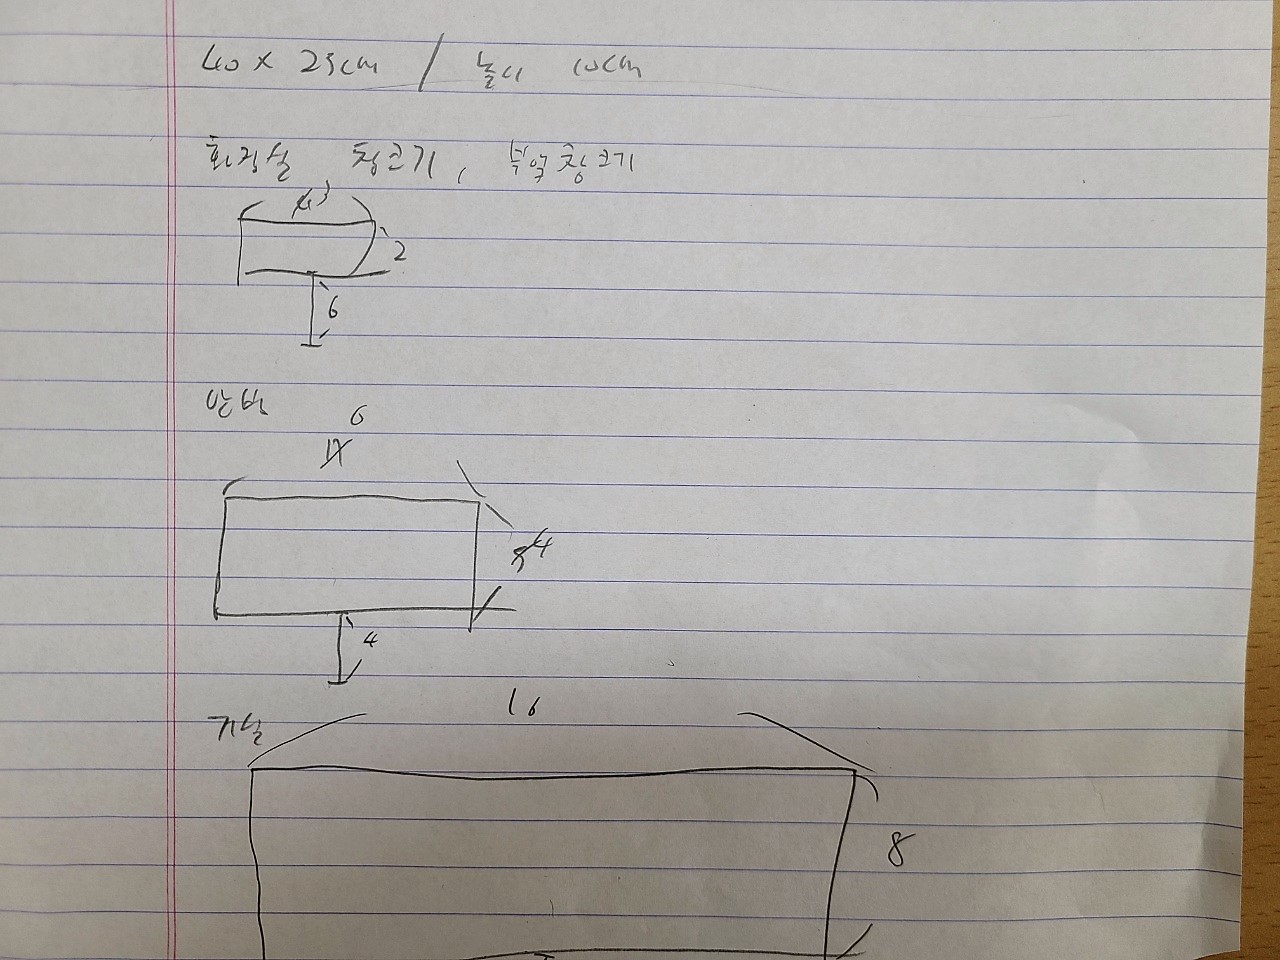 40 x 25cm / 높이 10cm
화장실 창크기, 부엌창크기
3
2
6
안방
6
4
4
거실
16
8